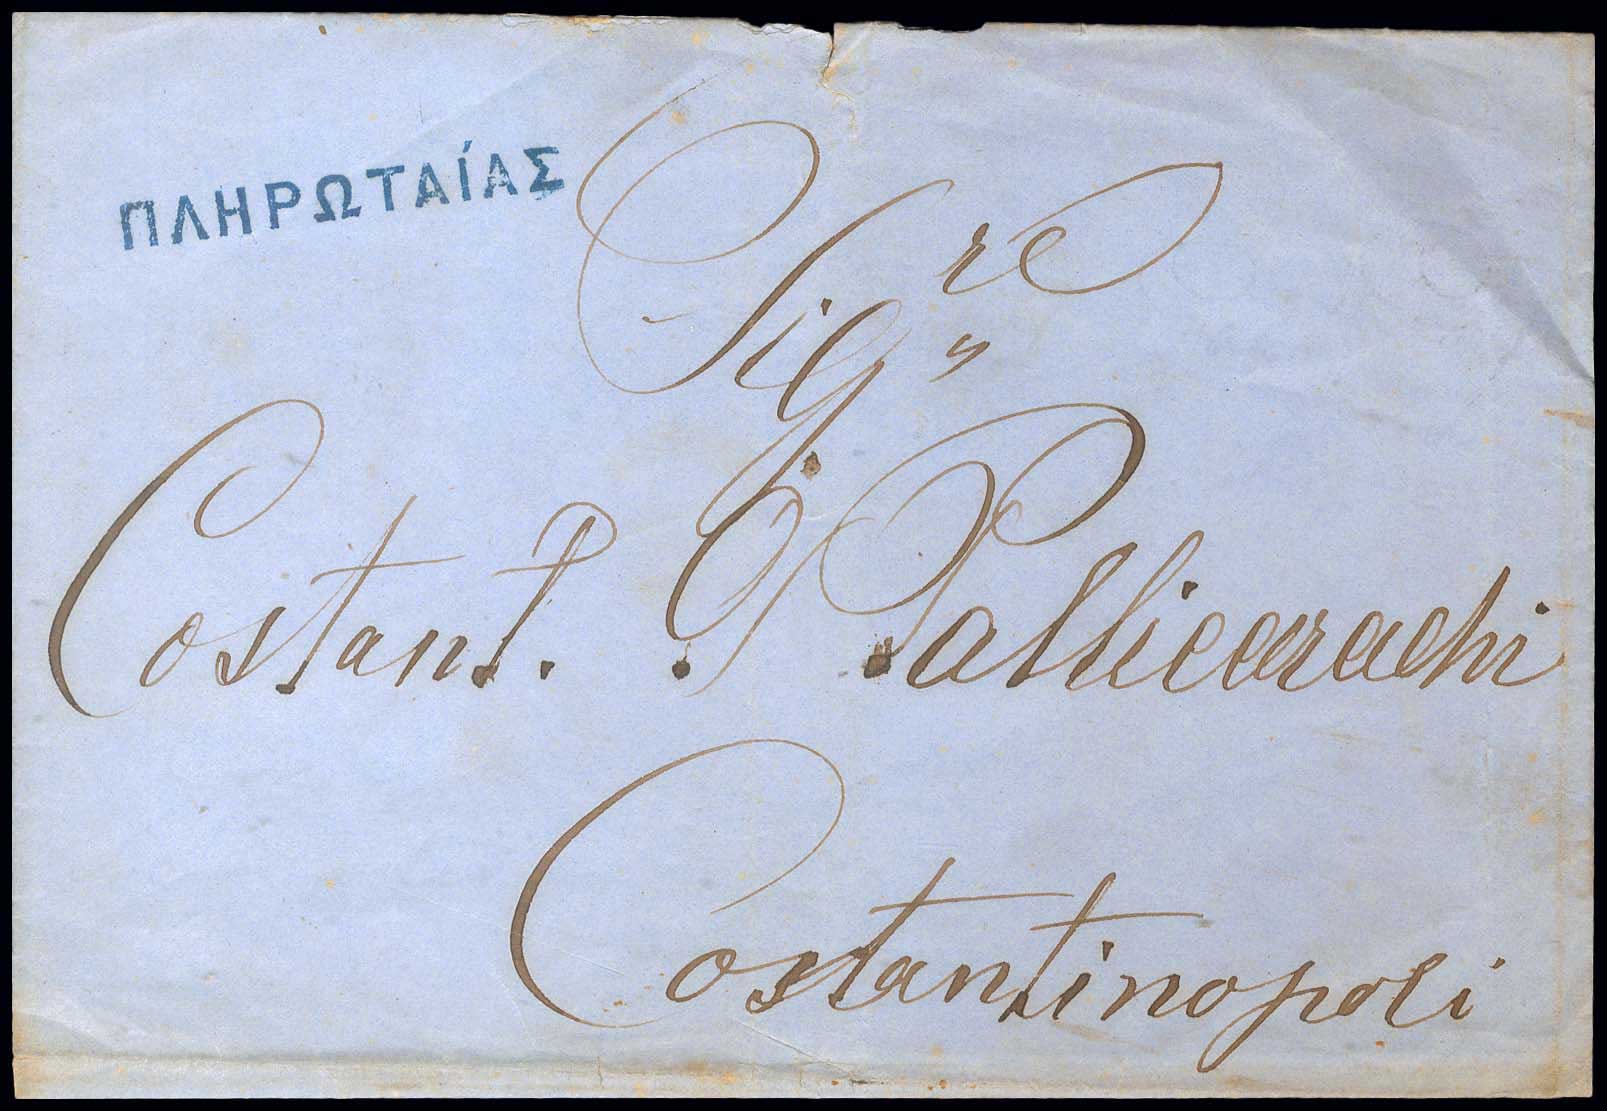 ΠΛΗΡΩΤΑΊΑΣ
Sig.re
Costant. G. Palliccarachi
Costantinopoli